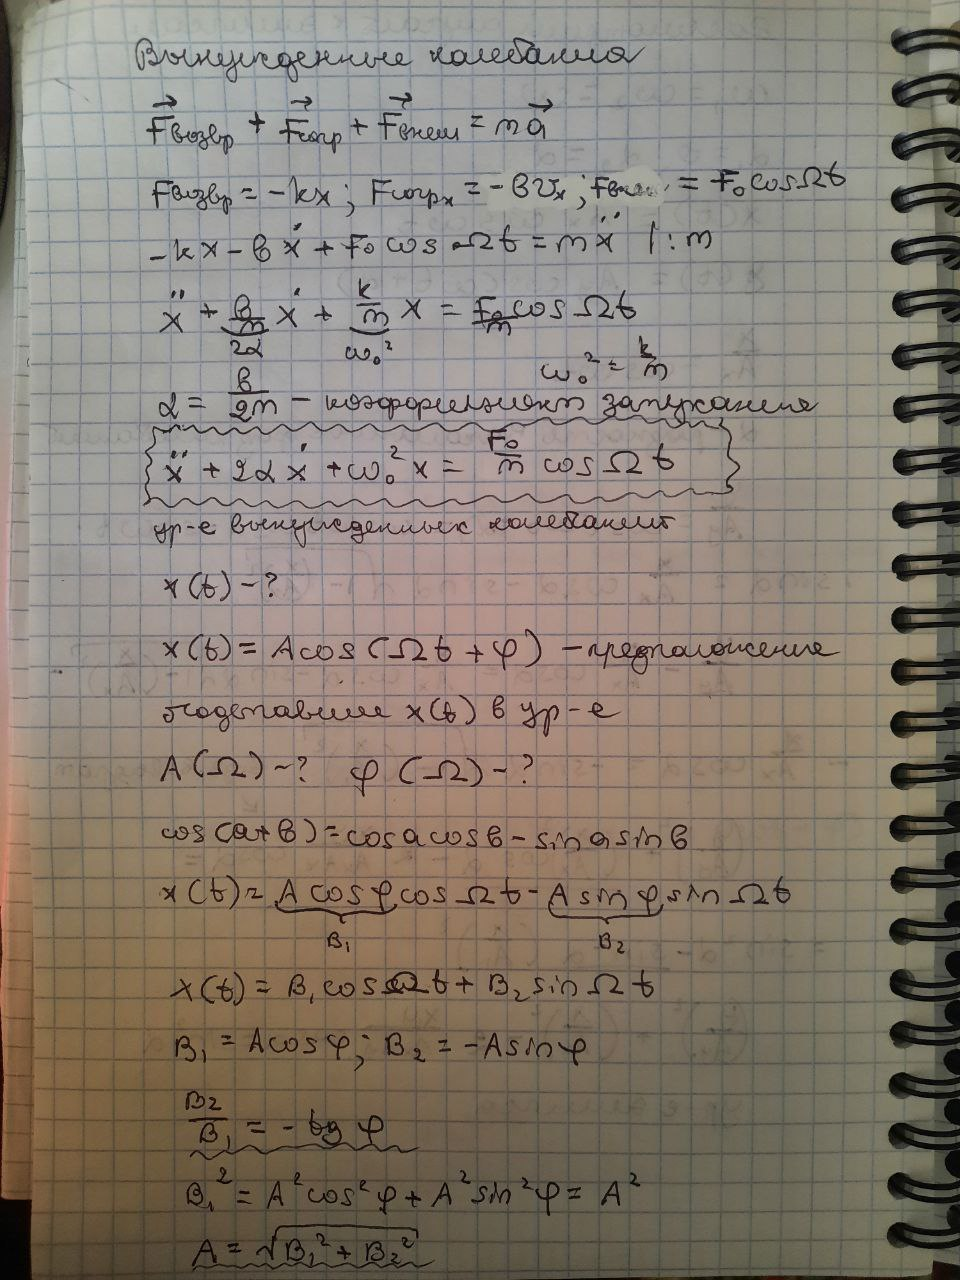 Вынужденные колебания
F⃗возвр + F⃗сопр + F⃗внеш = ma⃗
Fвозвр = -kx; Fсопрx = -вVx; Fвн = F₀cosΩt
-kx - вẋ + F₀ cos Ωt = mẍ |:m
ẍ + в/m ẋ + k/m x = F₀/m cos Ωt
2α ω₀²
ω₀² = k/m
α = в/2m - коэффициент затухания
ẍ + 2αẋ + ω₀²x = F₀/m cos Ωt
ур-е вынужденных колебаний
x(t) - ?
x(t) = A cos(Ωt + φ) - предположение
подставим x(t) в ур-е
A(Ω) - ? φ(Ω) - ?
cos(a+в) = cosa cosв - sin a sin в
x(t) = A cos φ cos Ωt - A sin φ sin Ωt
B₁ B₂
x(t) = B₁ cos Ωt + B₂ sin Ωt
B₁ = A cos φ; B₂ = -A sin φ
B₂/B₁ = - tg φ
B₁² = A² cos² φ + A² sin² φ = A²
A = √(B₁² + B₂²)